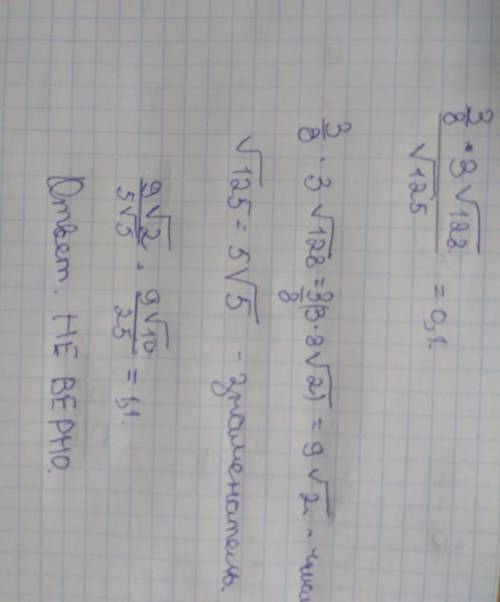 3/8 · 3√128 / √125 = 0,1.
3/8 · 3√128 = 3/8 (3 · 8√2) = 9√2 -
√125 = 5√5 - знаменатель.
9√2 / 5√5 = 9√10 / 25 = 1,1.
Ответ. НЕ ВЕРНО.